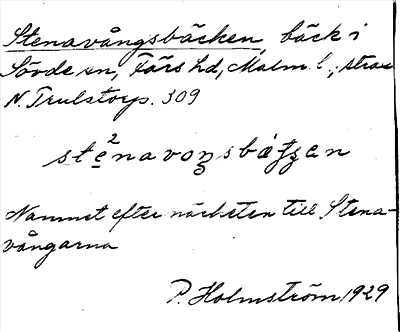 Stenavångsbäcken, bäck i
Sövde sn, Färs hd, Malm. l., strax
N. Trulstorp. 309
Namnet efter närheten till Stena-
vångarna
P. Holmström, 1929